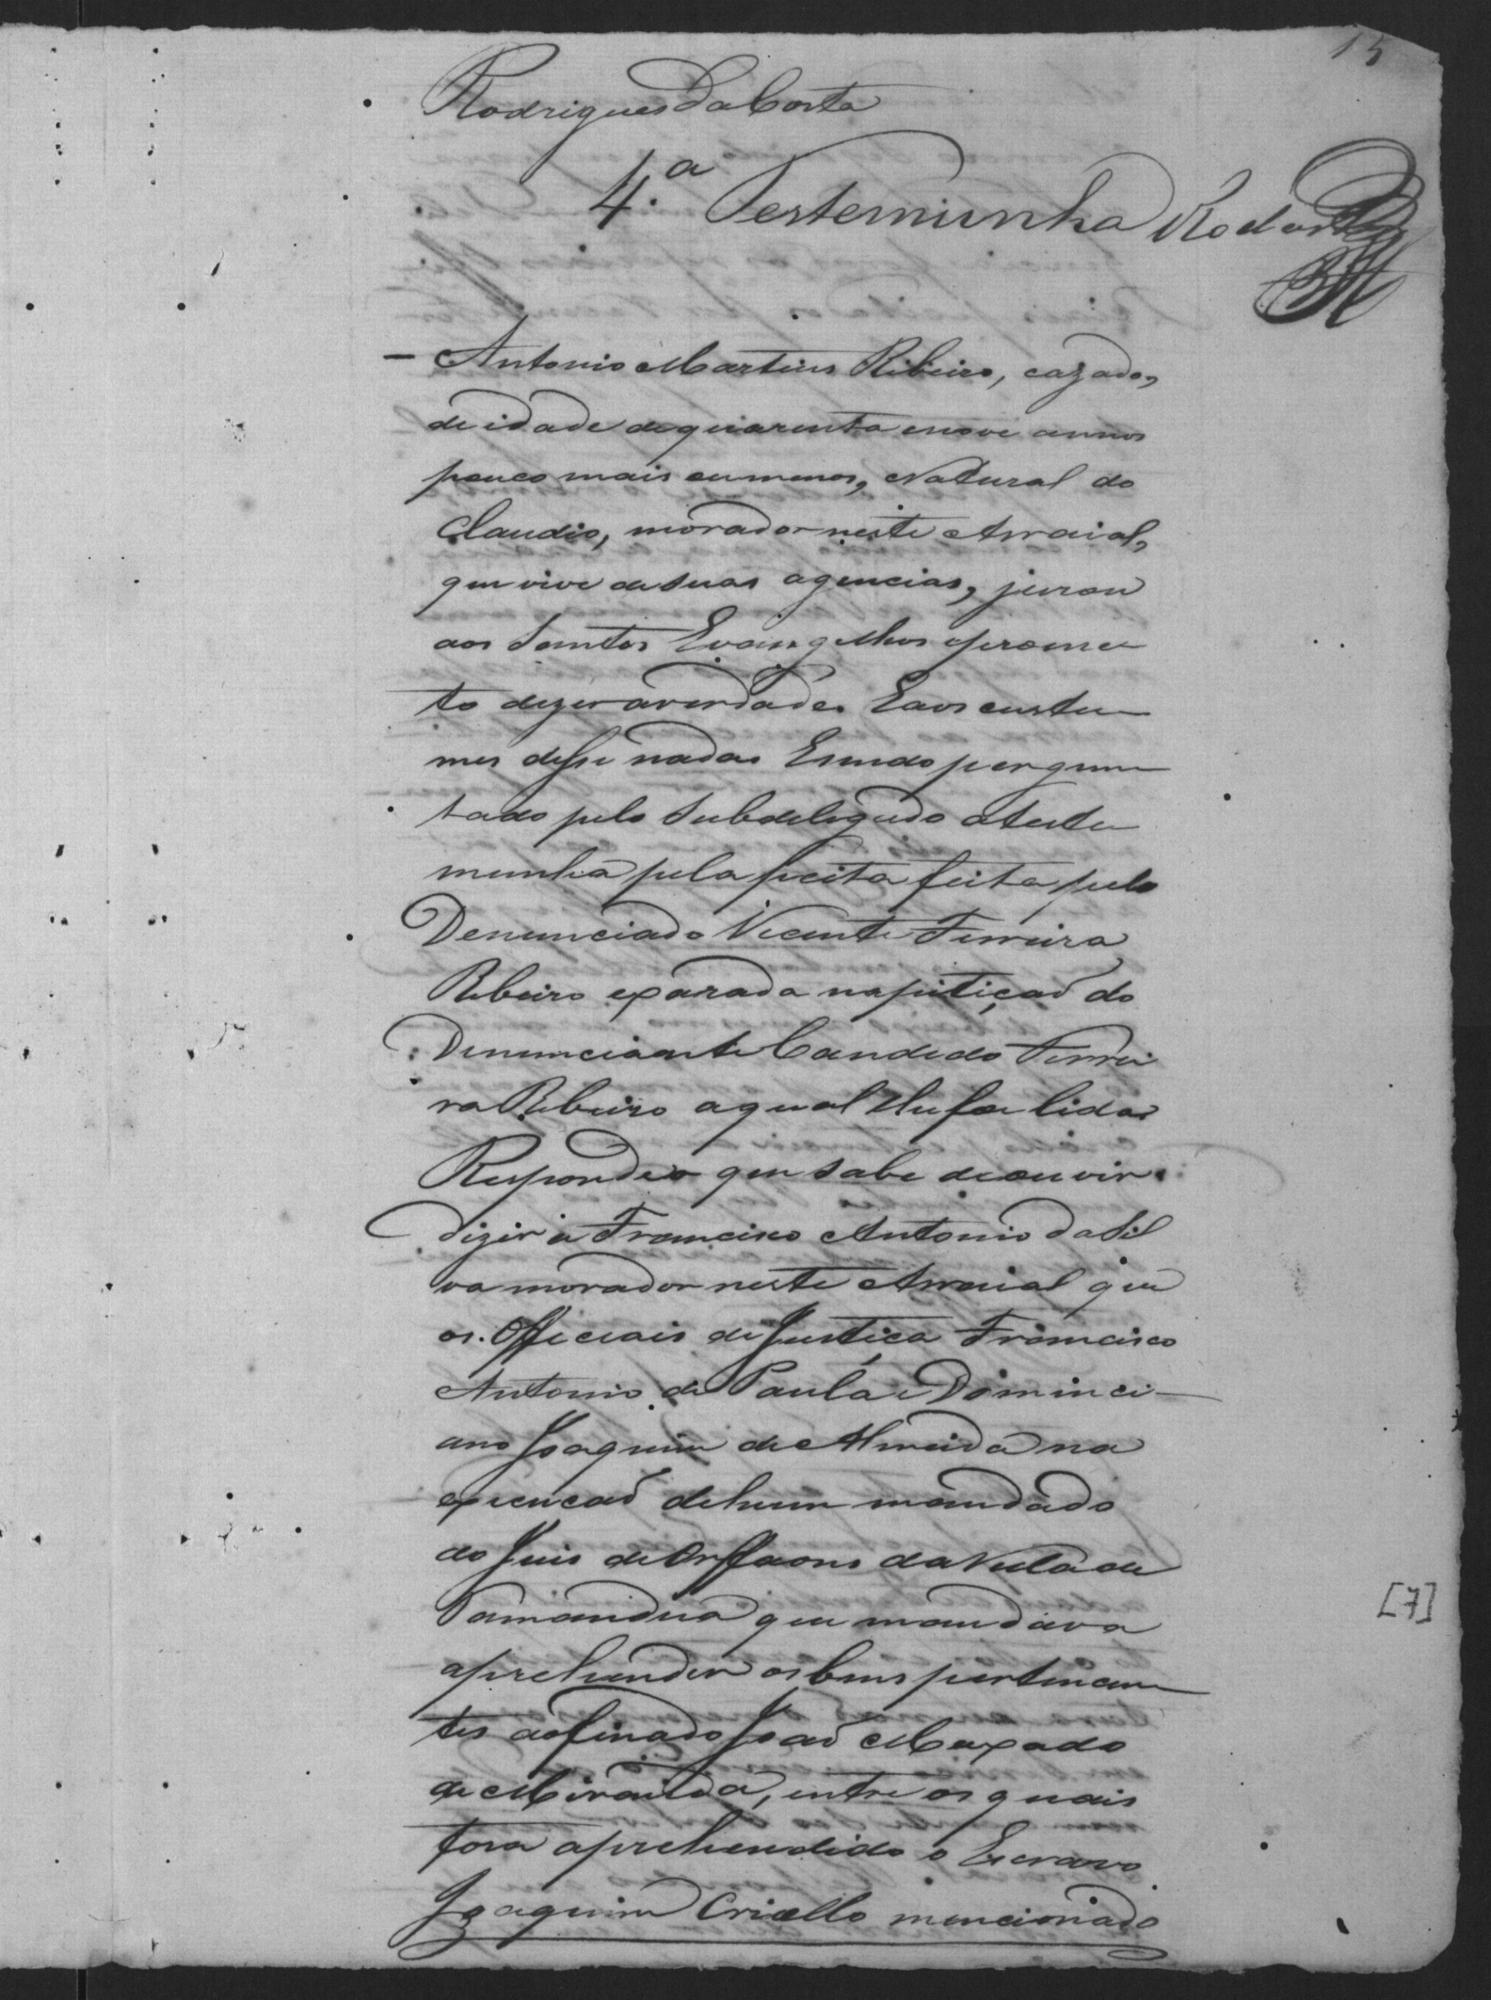 15
Rodrigues da Costa
4.a Testemunha
Antonio Martins Ribeiro, cazado,
de idade de quarenta enove annos
pouco mais ou menos, Natural do
Claudio, morador neste Arraial,
que vive de suas agencias, jurou
aos Santos Evangelhos eprome
to dizer averdade. Eaos custu
mes disse nada. Esendo pergun
tado pelo Subdelegado ateste
munha pela peita feita pelo
Denunciado Vicente Ferreira
Ribeiro exarada napetiçaõ do
Denunciante Candido Ferrei
ra Ribeiro aqual lhe foi lida
Respondeo que sabe de ouvir
dizer a Francisco Antonio da Sil
va morador neste Arraial que
os Officiais de Justiça Francisco
Antonio de Paula e Dominci
ano Joaquim de Almeida na
execucaõ dehum mandado
do Juis de Orffaons da Villa de
Tamandua que mandava
aprehender os bens pertencen
tes aofinado Joaõ Maxado
de Miranda, entre os quais
fora aprehendido o Escravo
Joaquim Criollo mencionado
[7]